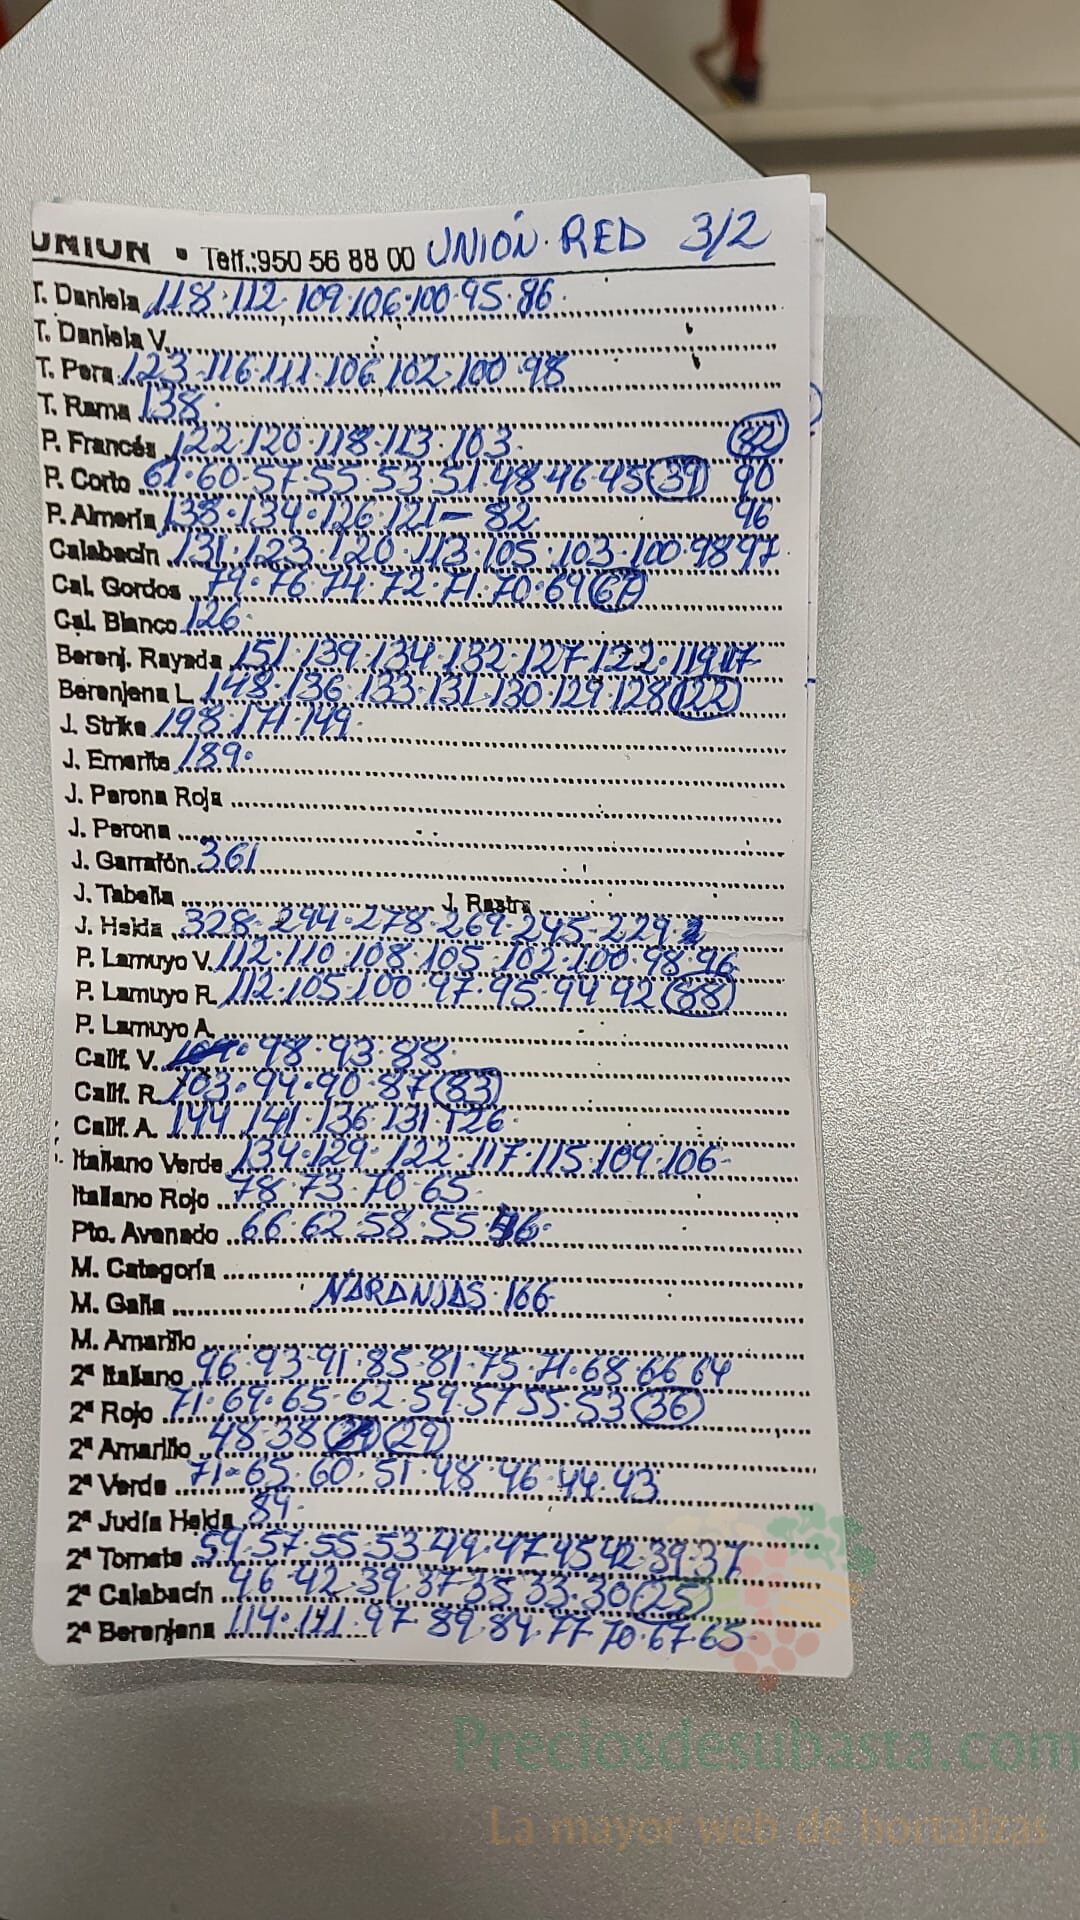 UNIÓN • Telf.:950 56 88 00 UNIÓN RED 3/2
T. Daniela 118·112·109·106·100·95·86·
T. Daniela V.
T. Pera 123·116·111·106·102·100·98
T. Rama 138·
P. Francés 122·120·118·113·103· 82
P. Corto 61·60·57·55·53·51·48·46·45 39 90
P. Almería 138·134·126·121–82 96
Calabacín 131·123·120·113·105·103·100·98 97
Cal. Gordos 79·76·74·72·71·70·69 67
Cal. Blanco 126·
Berenj. Rayada 151·139·134·132·127·122·119 117
Berenjena L. 148·136·133·131·130·129·128 122
J. Strike 198·171·149·
J. Emerite 189·
J. Perona Roja
J. Perona
J. Garrafón 361
J. Tabella J. Rastra
J. Helda 328·294·278·269·245·229·
P. Lamuyo V. 112·110·108·105·102·100·98·96
P. Lamuyo R. 112·105·100·97·95·94·92 88
P. Lamuyo A.
Calif. V. 98·93·88·
Calif. R. 103·94·90·87 83
Calif. A. 144·141·136·131·126·
Italiano Verde 134·129·122·117·115·109·106·
Italiano Rojo 78·73·70·65·
Pto. Asado 66·62·58·55·
M. Categoría
M. Galia NARANJAS·166
M. Amarillo
2ª Italiano 96·93·91·85·81·75·71·68·66 64
2ª Rojo 71·69·65·62·59·57 55·53 36
2ª Amarillo 48·38 29
2ª Verde 71·65·60·51·48·46·44·43
2ª Judía Helda 84·
2ª Tomate 59·57·55·53·49·47·45 42·39·37
2ª Calabacín 46·42·39·37·35·33·30 25
2ª Berenjena 114·111·97·89·84·77·70·67·65·
Preciosdesubasta.com
La mayor web de hortalizas